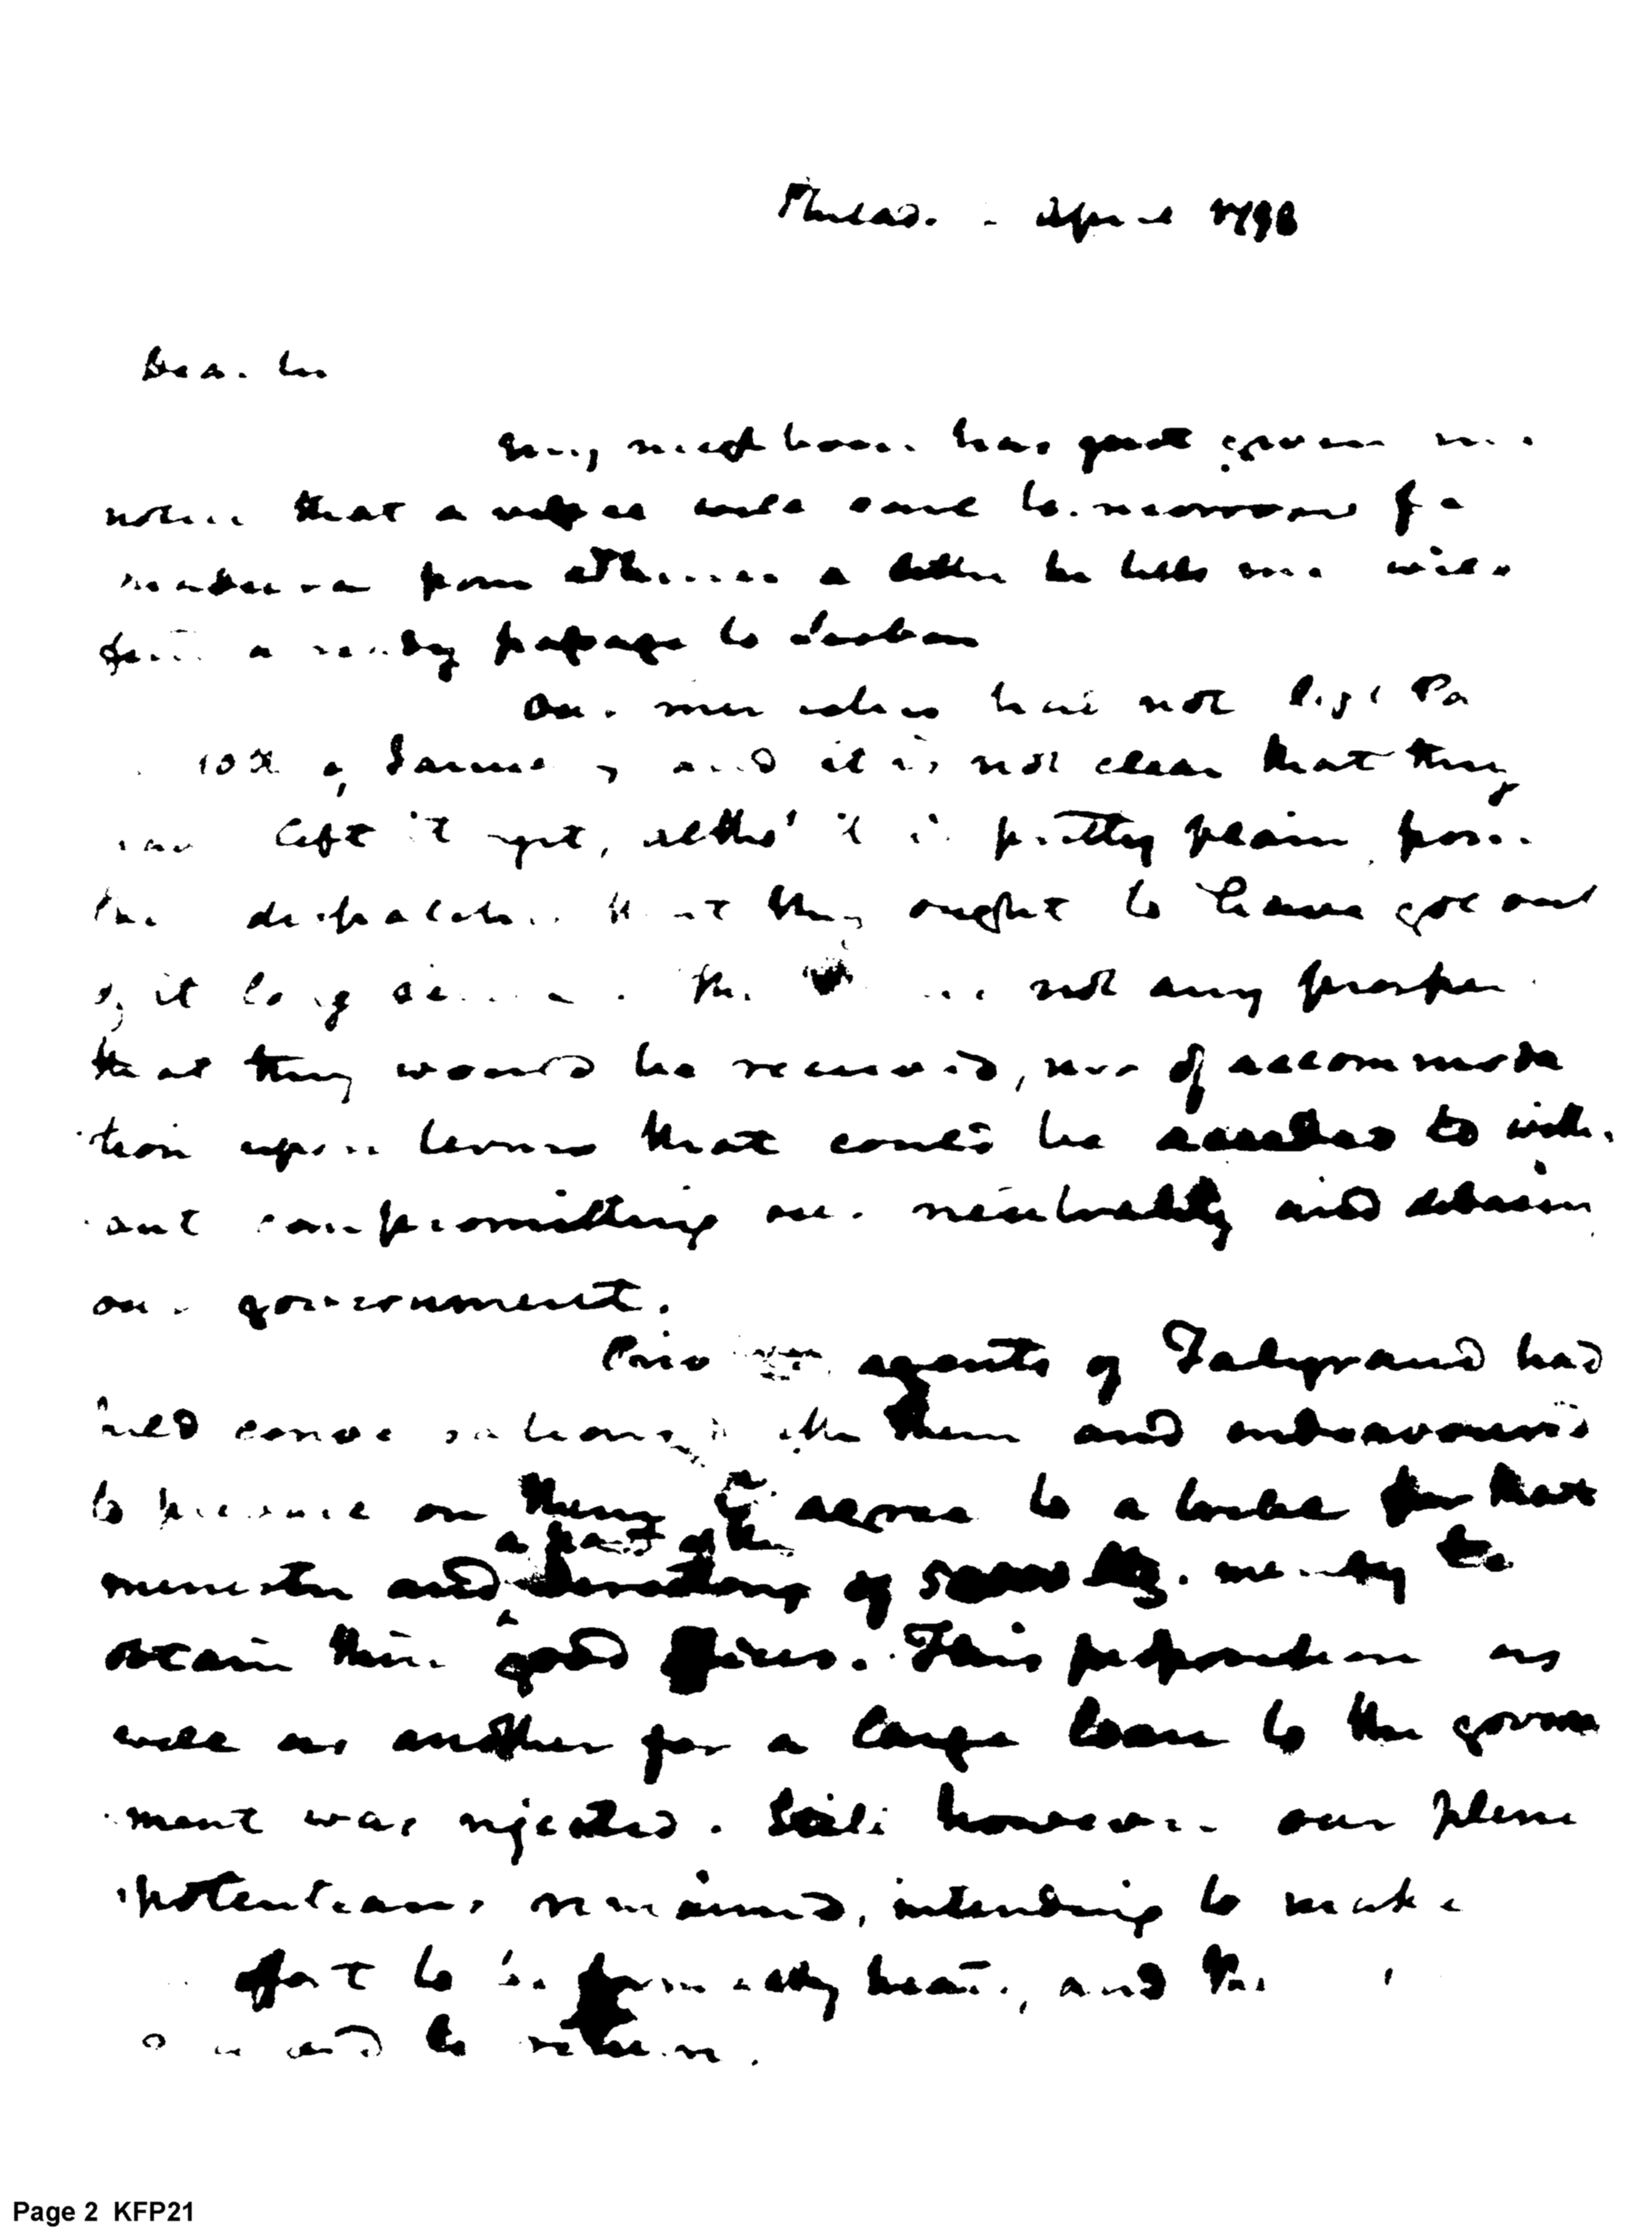 Philad. - April 1798
Dear Sir
My neighbour has just given me
notice that a vessel will sail to-morrow for
Madeira from whence a letter he tells me will
find a ready passage to Lisbon
Our ministers had not left Pa
10th of January and it is not clear that they
have left it yet, altho' it is pretty plain from
the dispatches that they ought to have got out
of it long since. There was not any prospect
that they would be received, nor of accommoda
tion upon terms that could be acceded to with-
out compromitting our neutrality and
our government.
Private agents of Talleyrand had
held conversations with them and endeavoured
to pressure on them to agree to a bribe for that
minister and a part of the directory of to
obtain their good offices. This proposition as
well as another for a large loan to the govern
ment was rejected. Still however our pleni
potentiaries remained, intending to make
effort to be formally heard, and
to return.
Page 2 KFP21